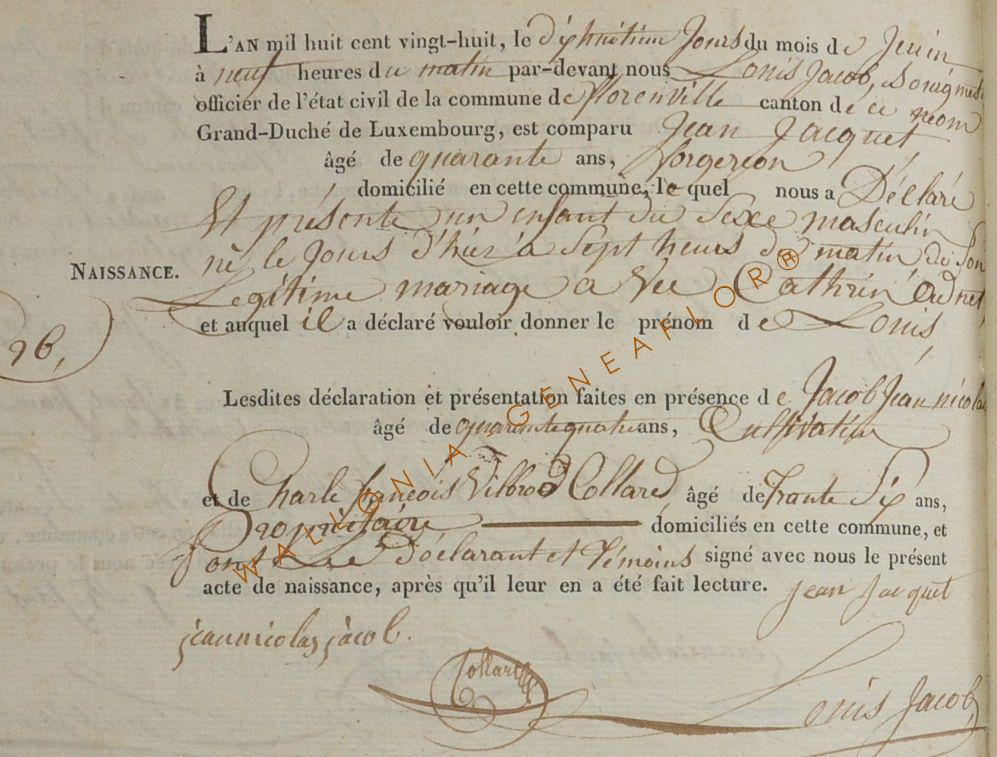 L'AN mil huit cent vingt-huit, le dixhuitium Jours du mois de Jeuin
à neuf heures du matin par-devant nous Louis Jacob, Soussigné
officier de l'état civil de la commune de florenville canton de ce nom
Grand-Duché de Luxembourg, est comparu Jean Jacquet,
âgé de quarante ans, forgeron
domicilié en cette commune, le quel nous a Déclaré
Et présente un enfant du Sexe masculin
NAISSANCE. né le Jours d'hièr à Sept heurs du matin de Son
Legitime mariage avec Cathrin Oudnet,
et auquel il a déclaré vouloir donner le prénom de Louis,
96,
Lesdites déclaration et présentation faites en présence de Jacob Jean nicolas
âgé de quarante quatre ans, Cultivateur
et de Charle françois Vilbrod Collard âgé de trante Six ans,
Propriétaire domiciliés en cette commune, et
font Le Déclarant et témoins signé avec nous le présent
acte de naissance, après qu'il leur en a été fait lecture. jean jacquet
jeannicolas jacob.
Collard
Louis Jacob,
WALLONIA GENEAFLOR®